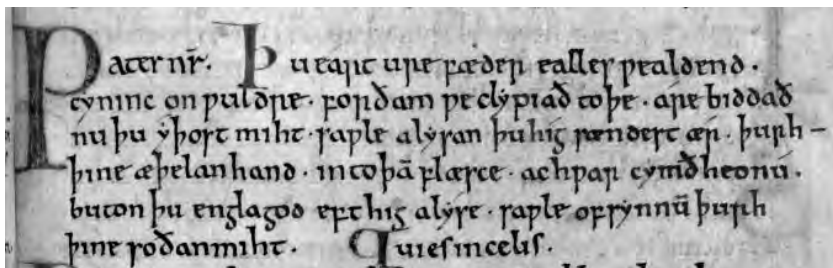 Pater nr̄. Þu eart ure fæder ealles ƿealdend.
cyninc on ƿuldre. forðam ƿe clypiað to þe. are biddað
nu þu ẏþost miht. saƿle alẏsan þu hig sændest ær. þurh-
þine æþelan hand. in to þā flæsce. ac hƿar cymð heo nu.
buton þu engla god eft hig alẏse. saƿle of synnū þurh
þine soðan miht. Qui es in celis.